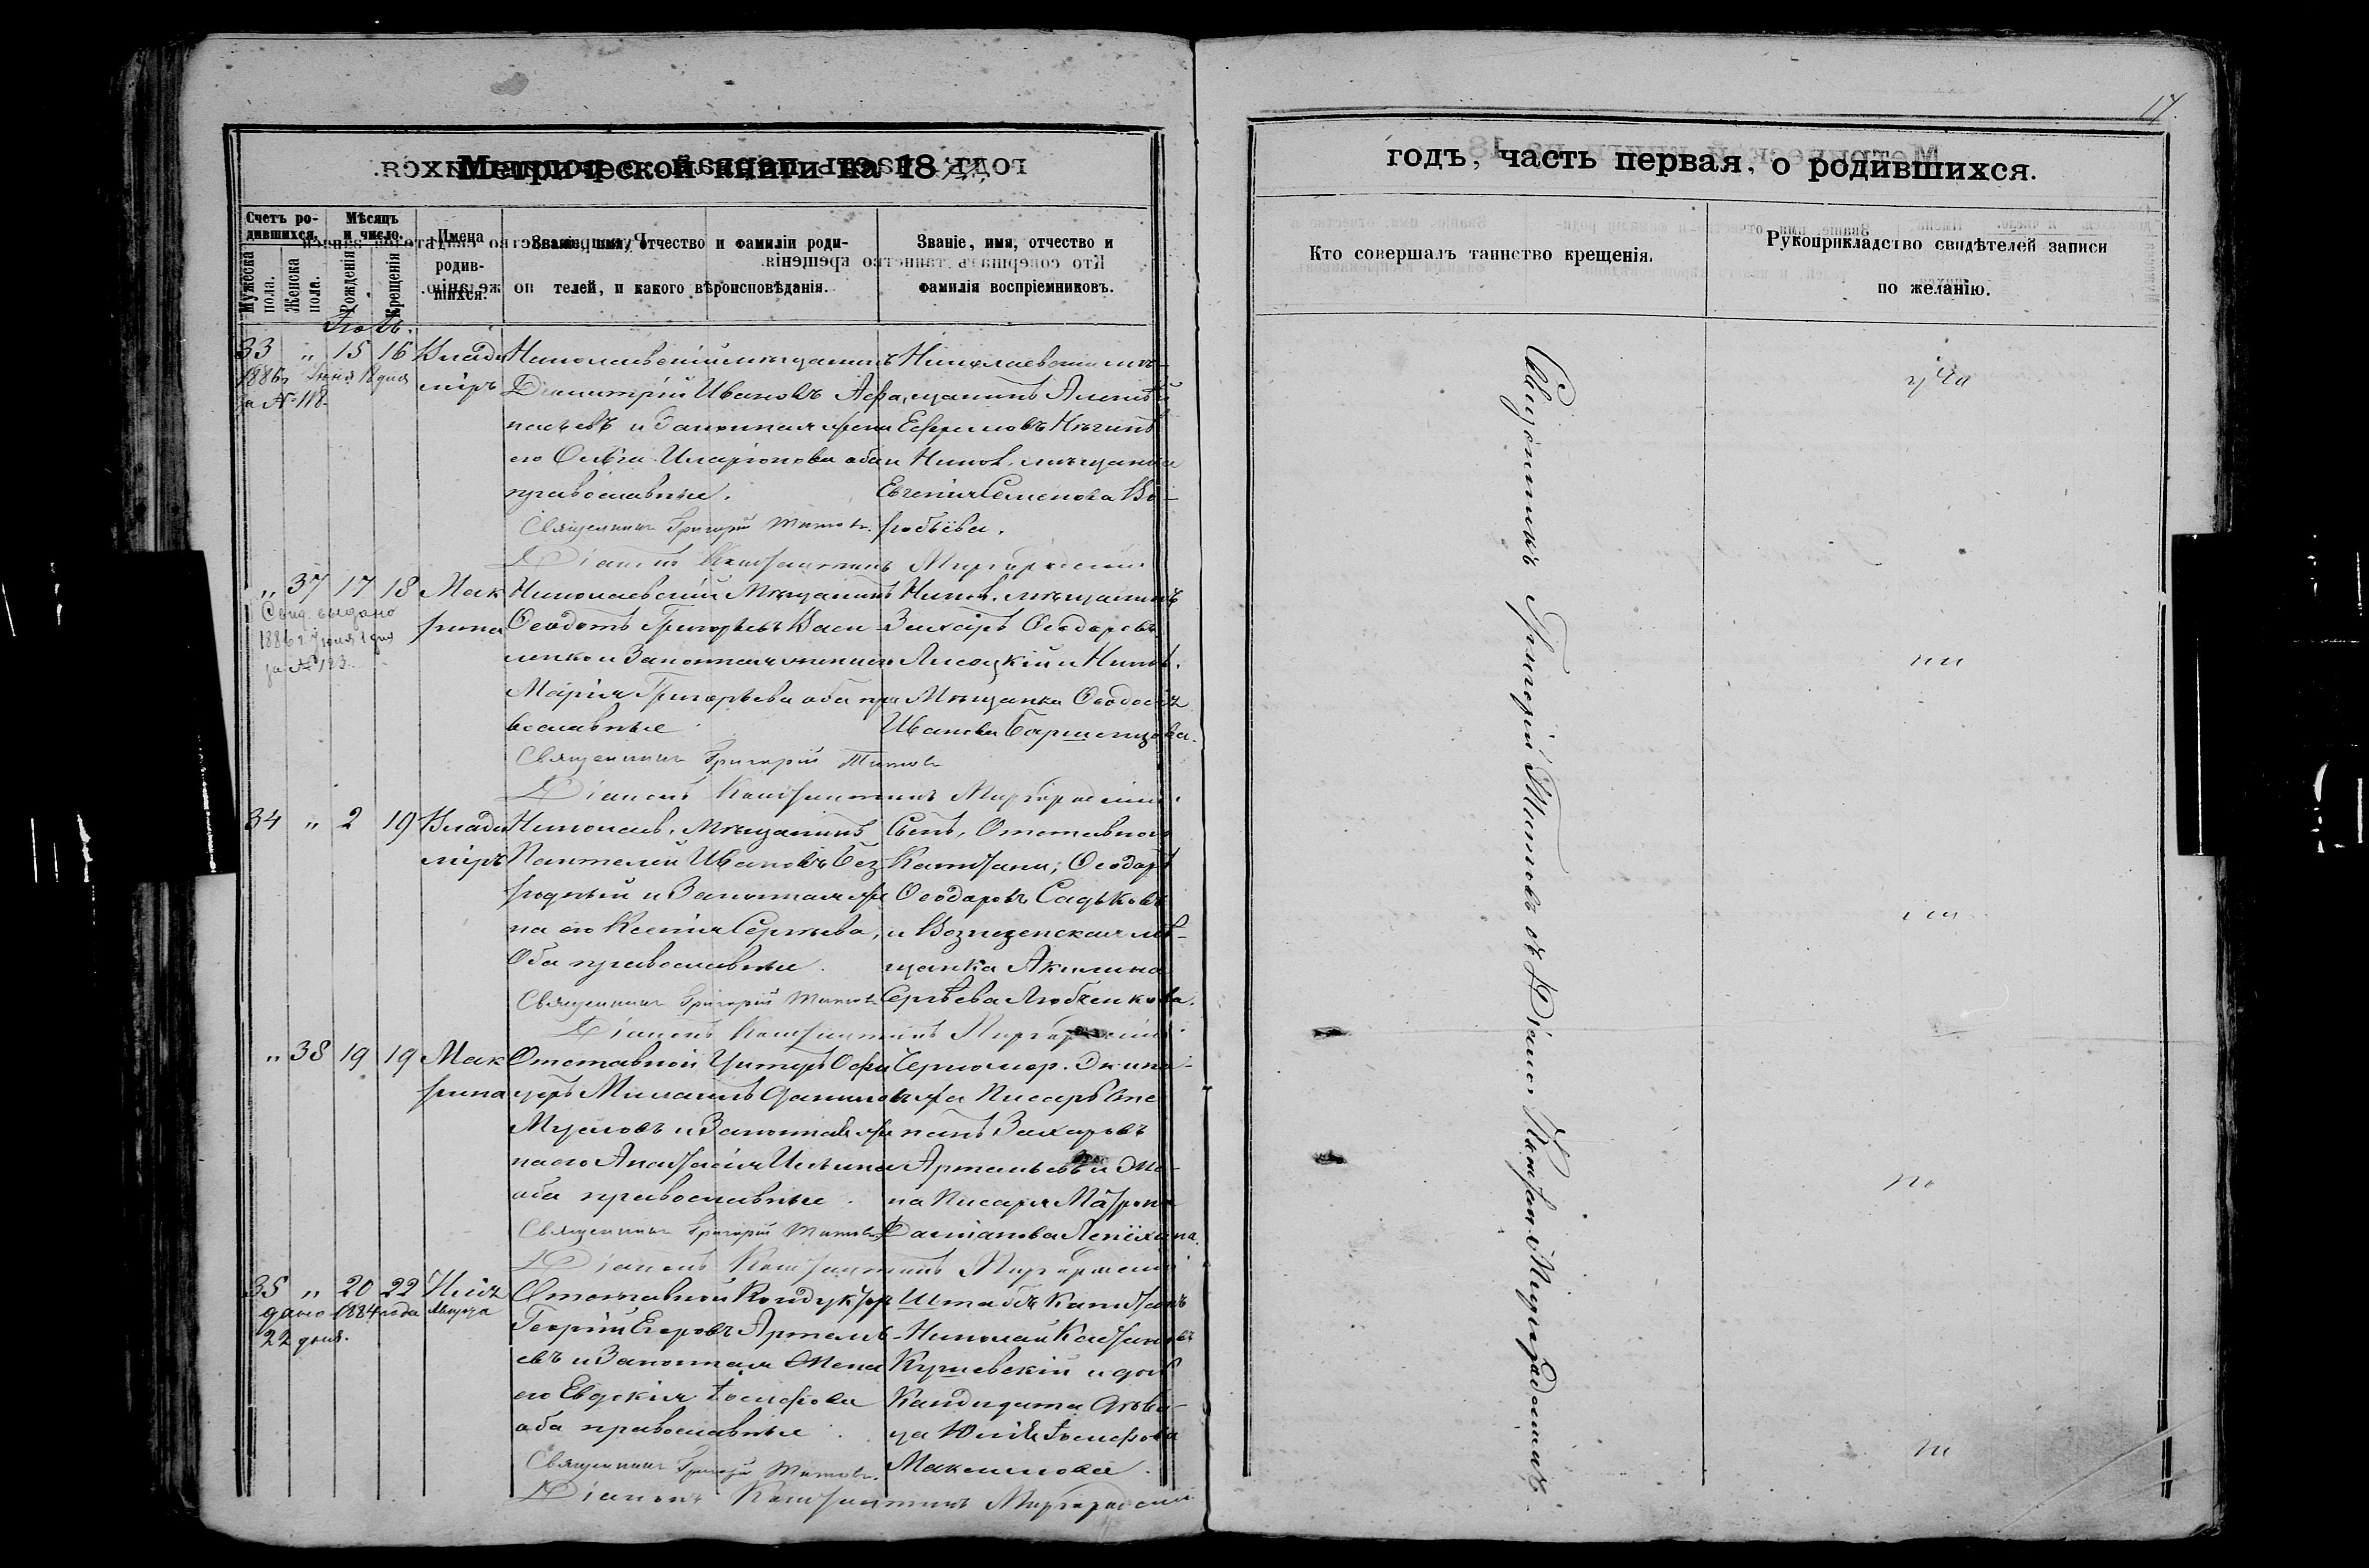 Метрической книги на 18
Счетъ ро-
дившихся.
Мѣсяцъ
и число.
Мужеска
пола.
Женска
пола.
Рожденія
Крещенія
Имена
родив-
шихся.
Званіе, имя, отчество и фамиліи роди-
телей, и какого вѣроисповѣданія.
Званіе, имя, отчество и
фамилія воспріемниковъ.
Іюль.
33 " 15 16 Влади
міръ
1886 г. Іюня 18 дня
за № 118.
Николаевскій мѣщанинъ
Димитрій Ивановъ Афа
насьевъ и Законная жена
его Ольга Иларіонова оба
православные.
Священникъ Григорій Титовъ.
Діаконъ Константинъ Миргородскій
Николаевскій мѣ-
щанинъ Алексѣй
Ефремовъ Нѣгинъ
и Никол. мѣщанка
Евгенія Семенова Во-
робьёва.
" 37 17 18 Мак
рина
Свид. выдано
1886 г. Іюля 1 дня
за № 123.
Николаевскій Мѣщанинъ
Ѳеодотъ Григорьевъ Васи
ленко и Законная жена его
Марія Григорьева оба пра
вославные
Священникъ Григорій Титовъ
Діаконъ Константинъ Миргородскій.
Никол. мѣщанинъ
Захарь Ѳеодоровъ
Лисецкій и Никол.
Мѣщанка Ѳеодосія
Иванова
34 " 2 19 Влади
міръ
Николаев. Мѣщанинъ
Пантелей Ивановъ Без
родный и Законная же
на его Ксенія Сергѣева,
Оба православные.
Священникъ Григорій Титовъ
Діаконъ Константинъ Миргородскій.
Сынъ, Отставного
Капитана; Ѳеодоръ
Ѳеодоровъ Садьковъ
и Вознезенская мѣ-
щанка Акилина
Сергѣева Любченкова.
" 38 19 19 Мак
рина
Отставной Унтеръ Офи
церъ Михаилъ Даниловъ
и Законная же
на его Анастасія Ильина
оба православные.
Священникъ Григорій Титовъ
Діаконъ Константинъ Миргородскій
Черномор. Экипа-
жа Писарь Сте
панъ Захаровъ
Артемьевъ и Же-
на Писаря Матрона
Даміанова
35 " 20 22 Илія
дано 1884 года Марта
22 дня.
Отставной Кондукторъ
Георгій Егоровъ Артемь-
евъ и Законная Жена
его Евдокія Іосифова
оба православные.
Священникъ Григорій Титовъ.
Діаконъ Константинъ Миргородскій
Штабсъ Капитанъ
Николай
и дочь
Кандидата Дѣви-
ца Юлія Іосифова
Максимова.
17.
годъ, часть первая, о родившихся.
Кто совершалъ таинство крещенія.
Рукоприкладство свидѣтелей записи
по желанію.
Священникъ Григорій Титовъ съ Діакон. Констан. Миргородскимъ